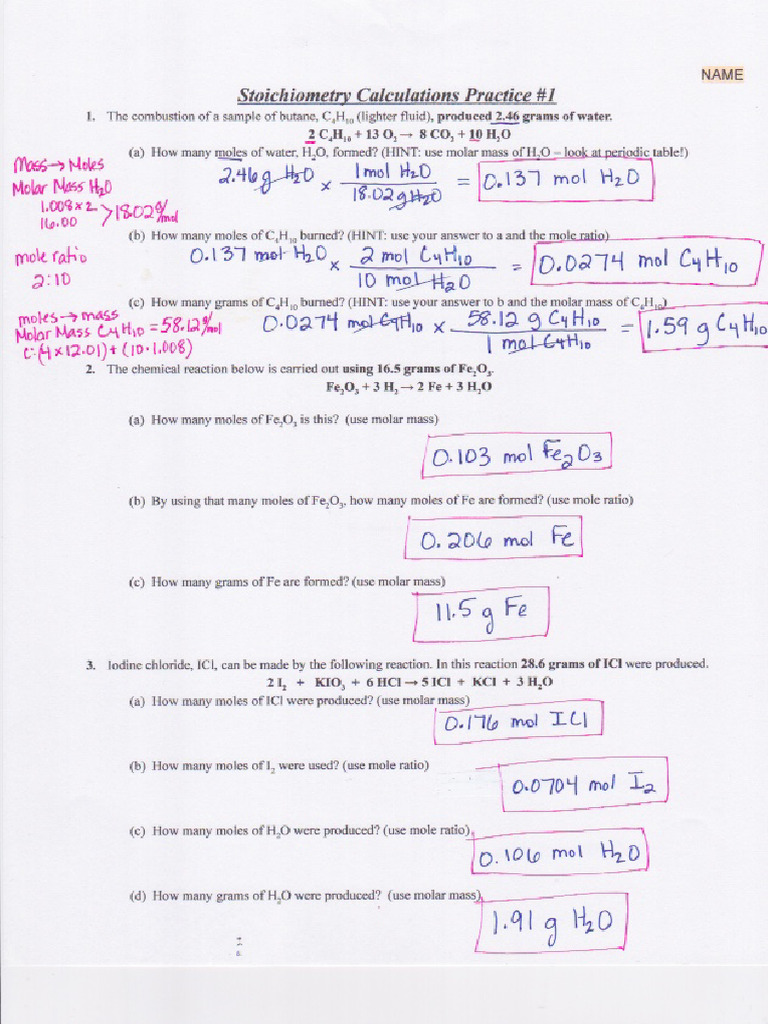 NAME
Stoichiometry Calculations Practice #1
1. The combustion of a sample of butane, C₄H₁₀ (lighter fluid), produced 2.46 grams of water.
2 C₄H₁₀ + 13 O₂ → 8 CO₂ + 10 H₂O
(a) How many moles of water, H₂O, formed? (HINT: use molar mass of H₂O – look at periodic table!)
Mass → Moles
Molar Mass H₂O
1.008 x 2
16.00 > 18.02 g/mol
2.46 g H₂O x 1 mol H₂O / 18.02 g H₂O = 0.137 mol H₂O
(b) How many moles of C₄H₁₀ burned? (HINT: use your answer to a and the mole ratio)
mole ratio
2:10
0.137 mol H₂O x 2 mol C₄H₁₀ / 10 mol H₂O = 0.0274 mol C₄H₁₀
(c) How many grams of C₄H₁₀ burned? (HINT: use your answer to b and the molar mass of C₄H₁₀)
moles → mass
Molar Mass C₄H₁₀ = 58.12 g/mol
C: (4 x 12.01) + (10 · 1.008)
0.0274 mol C₄H₁₀ x 58.12 g C₄H₁₀ / 1 mol C₄H₁₀ = 1.59 g C₄H₁₀
2. The chemical reaction below is carried out using 16.5 grams of Fe₂O₃.
Fe₂O₃ + 3 H₂ → 2 Fe + 3 H₂O
(a) How many moles of Fe₂O₃ is this? (use molar mass)
0.103 mol Fe₂O₃
(b) By using that many moles of Fe₂O₃, how many moles of Fe are formed? (use mole ratio)
0.206 mol Fe
(c) How many grams of Fe are formed? (use molar mass)
11.5 g Fe
3. Iodine chloride, ICl, can be made by the following reaction. In this reaction 28.6 grams of ICl were produced.
2 I₂ + KIO₃ + 6 HCl → 5 ICl + KCl + 3 H₂O
(a) How many moles of ICl were produced? (use molar mass)
0.176 mol ICl
(b) How many moles of I₂ were used? (use mole ratio)
0.0704 mol I₂
(c) How many moles of H₂O were produced? (use mole ratio)
0.106 mol H₂O
(d) How many grams of H₂O were produced? (use molar mass)
1.91 g H₂O